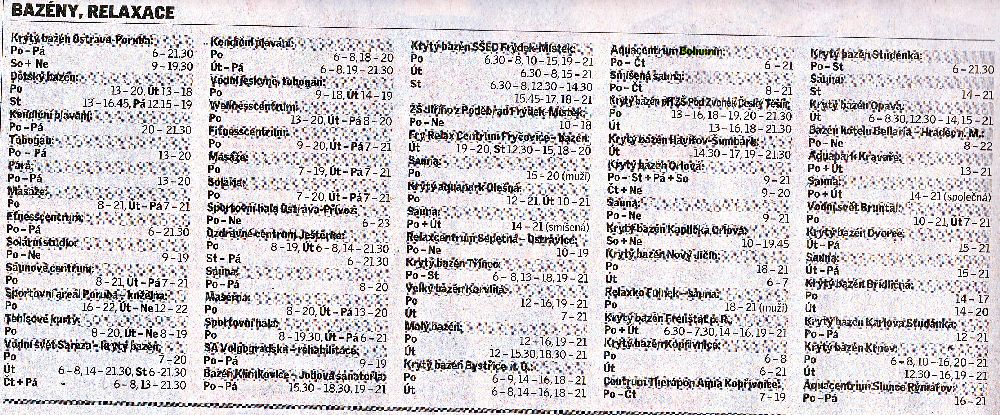 BAZÉNY, RELAXACE
Krytý bazén Ostrava-Poruba:
Po – Pá 6 – 21.30
So + Ne 9 – 19.30
Dětský bazén:
Po 13 – 20, Út 13 – 18
St 13 – 16.45, Pá 12.15 – 19
Kondiční plavání:
Po – Pá 20 – 21.30
Tobogán:
Po – Pá 13 – 20
Pára:
Po – Pá 13 – 20
Masáže:
Po 8 – 21, Út – Pá 7 – 21
Fitnesscentrum:
Po – Pá 6 – 21.30
Solární studio:
Po – Ne 9 – 19
Saunové centrum:
Po 8 – 21, Út – Pá 7 – 21
Sportovní areál Poruba – kuželna:
Po 16 – 22, Út – Ne 12 – 22
Tenisové kurty:
Po 8 – 20, Út – Ne 8 – 19
Vodní svět Sareza – krytý bazén:
Po 7 – 20
Út 6 – 8, 14 – 21.30, St 6 – 21.30
Čt + Pá 6 – 8, 13 – 21.30
Kondiční plavání:
Po 6 – 8, 18 – 20
Út – Pá 6 – 8, 19 – 21.30
Vodní jeskyně, tobogán:
Po 9 – 18, Út 14 – 19
Wellnesscentrum:
Po 13 – 20, Út – Pá 8 – 20
Fitnesscentrum:
Po 9 – 20, Út – Pá 7 – 21
Masáže:
Po 7 – 19, Út – Pá 7 – 21
Solária:
Po 7 – 20, Út – Pá 7 – 21
Sportovní hala Ostrava-Přívoz:
Po – Ne 6 – 23
Ozdravné centrum Ještěrka:
Po 8 – 19, Út 6 – 8, 14 – 21.30
St – Pá 6 – 21.30
Sauna:
Po – Pá 8 – 20
Masérna:
Po 8 – 20, Út – Pá 13 – 20
Sportovní hala:
Po 8 – 19.30, Út – Pá 6 – 21
SA Volgogradská – rehabilitace:
Po – Pá 9 – 19
Bazén Klimkovice – Jodová sanatoria:
Po – Pá 15.30 – 18.30, 19 – 21
Krytý bazén SŠED Frýdek-Místek:
Po 6.30 – 8, 10 – 15, 19 – 21
Út 6.30 – 8, 15 – 21
St 6.30 – 8, 12.30 – 14.30
15.45 – 17, 18 – 21
ZŠ Jiřího z Poděbrad Frýdek-Místek:
Po – Ne 10 – 18
Fry Relax Centrum Fryčovice – bazén:
Út 19 – 20, St 12.30 – 15, 18 – 20
Sauna:
Po 15 – 20 (muži)
Krytý aquapark Olešná:
Po 12 – 21, Út 10 – 21
Sauna:
Po + Út 14 – 21 (smíšená)
Relaxcentrum Sepetná – Ostravice:
Po – Ne 10 – 19
Krytý bazén Třinec:
Po – St 6 – 8, 13 – 18, 19 – 21
Velký bazén Karviná:
Po 12 – 16, 19 – 21
Út 7 – 21
Malý bazén:
Po 12 – 16, 19 – 21
Út 12 – 15.30, 18.30 – 21
Krytý bazén Bystřice n. O.:
Po 6 – 9, 14 – 16, 18 – 21
Út 6 – 8, 14 – 16, 18 – 21
Aquacentrum Bohumín:
Po – Čt 6 – 21
Smíšená sauna:
Po – Čt 8 – 21
Krytý bazén při ZŠ Pod Zvonek Český Těšín:
Po 13 – 16, 18 – 19, 20 – 21.30
Út 13 – 16, 18 – 21.30
Krytý bazén Havířov-Šumbark:
Út 14.30 – 17, 19 – 21.30
Krytý bazén Orlová:
Po – St + Pá + So 9 – 21
Čt + Ne 9 – 20
Sauna:
Po – Ne 9 – 21
Krytý bazén Kaplička Orlová:
So + Ne 10 – 19.45
Krytý bazén Nový Jičín:
Po 18 – 21
Út 6 – 7
Relaxko Fulnek – sauna:
Po 18 – 21 (muži)
Krytý bazén Frenštát p. R.:
Po + Út 6.30 – 7.30, 14 – 16, 19 – 21
Krytý bazén Kopřivnice:
Po 6 – 8
Út 6 – 21
Centrum Therápón Aqua Kopřivnice:
Po – Čt 7 – 19
Krytý bazén Studénka:
Po – St 6 – 21.30
Sauna:
St 14 – 21
Krytý bazén Opava:
Út 6 – 8.30, 12.30 – 14, 15 – 21
Bazén hotelu Bellaria – Hradec n. M.:
Po – Ne 8 – 22
Aquapark Kravaře:
Po + Út 13 – 21
Sauna:
Po + Út 14 – 21 (společná)
Vodní svět Bruntál:
Po 10 – 21, Út 7 – 21
Krytý bazén Dvorce:
Út – Pá 15 – 21
Sauna:
Út – Pá 15 – 21
Krytý bazén Břidličná:
Po 14 – 17
Út 14 – 20
Krytý bazén Karlova Studánka:
Po – Pá 6 – 21
Krytý bazén Krnov:
Po 6 – 8, 10 – 16, 20 – 21
Út 12.30 – 16, 19 – 21
Aquacentrum Slunce Rýmařov:
Po – Pá 16 – 21